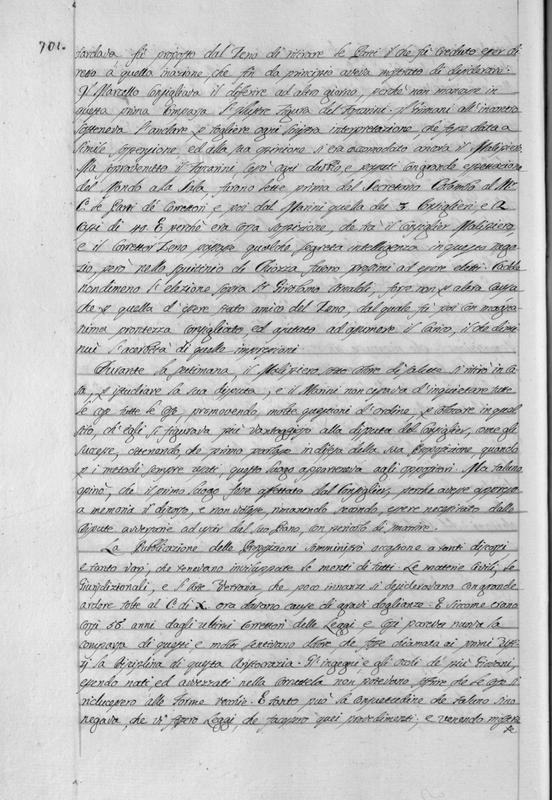 701.
tardava fù proposto dal Zeno di ritirare le Parti il che fù creduto esser di
retto à quella mozione, che fin da principio aveva mostrato di desiderarsi.
Il Marcello consigliava il differire ad altro giorno, perché non mancasse in
questa prima comparsa l'illustre figura del Foscarini. Il Grimani all'incontro
sosteneva l'andare, p togliere ogni sinistra interpretazione, che fosse data a
simile sospensione, ed alla sua opinione si era accomodato ancora il Malipiero.
Ma sopravvenuto il Foscarini levò ogni dubbio, e portati con grande espettazione
del Mondo alla Sala furono lette prima dal Secretario Colombo al M:
C: le Parti de Correttori e poi dal Marini quella dei 3 Consiglieri, e 2
Capi di 40. E perché era corsa sospizione, che trà il Consiglier Malipiero,
e il Correttor Zeno potesse qualche segreta intelligenza in questo nego
zio, però nello squitinio di Chiozza furono prossimi ad essere eletti. Cadde
nondimeno l'elezione sopra Girolamo forse non p altra causa
che p quella d'essere stato amico del Zeno, dal quale fù poi con magna
nima prontezza consigliato ed ajutato ad assumere il carico, il che dimi
nuì l'acerbità di quelle impressioni.
Durante la settimana, il Malipiero sotto colore di salute si ritirò in Ca
sa, p studiare la sua disputa, e il Marini non cessava d'inquietare tutte
le cose promovendo, molte questioni d'ordine, p collocare in quel
sito, ch'egli si figurava più vantaggioso alla disputa del Consiglier, come gli
successe, ottenendo che primo parlasse in difesa della sua Proposizione, quando
p i metodi sempre usati, questo luogo apparteneva agli oppositori. Ma taluno
opinò, che il primo luogo fosse affettato dal Consiglier, perche avesse appreso
a memoria il discorso, e non volesse, rimanendo secondo, essere necessitato dalle
dispute avversarie ad uscir dal suo Piano, con pericolo di mancare.
La Pubblicazione delle Proposizioni somministrò occasione a tanti discorsi
e tanto varj, che tenevano inviluppate le menti di tutti. Le materie Civili, le
Giurisdizionali, e l'Arte Vetraria, che poco innanzi si desideravano con grande
ardore tolte al C: di X. ora davano cause di gravi doglianze. E siccome erano
corsi 56 anni dagli ultimi Correttori delle Leggi e così pareva nuova la
comparsa di questi e molti sentivano dolore che fosse chiamata ai primi Uffi
zj la disciplina di questa Aristocrazia. Gl'ingegni e gli animi de più Giovani,
essendo nati ed avvezzati nella Corruttela non potevano soffrire che le cose si
riducessero alle forme vecchie. E tanto può la consuetudine che taluno sino
negava, che vi fossero Leggi, che facessero questi provvedimenti, e venendo